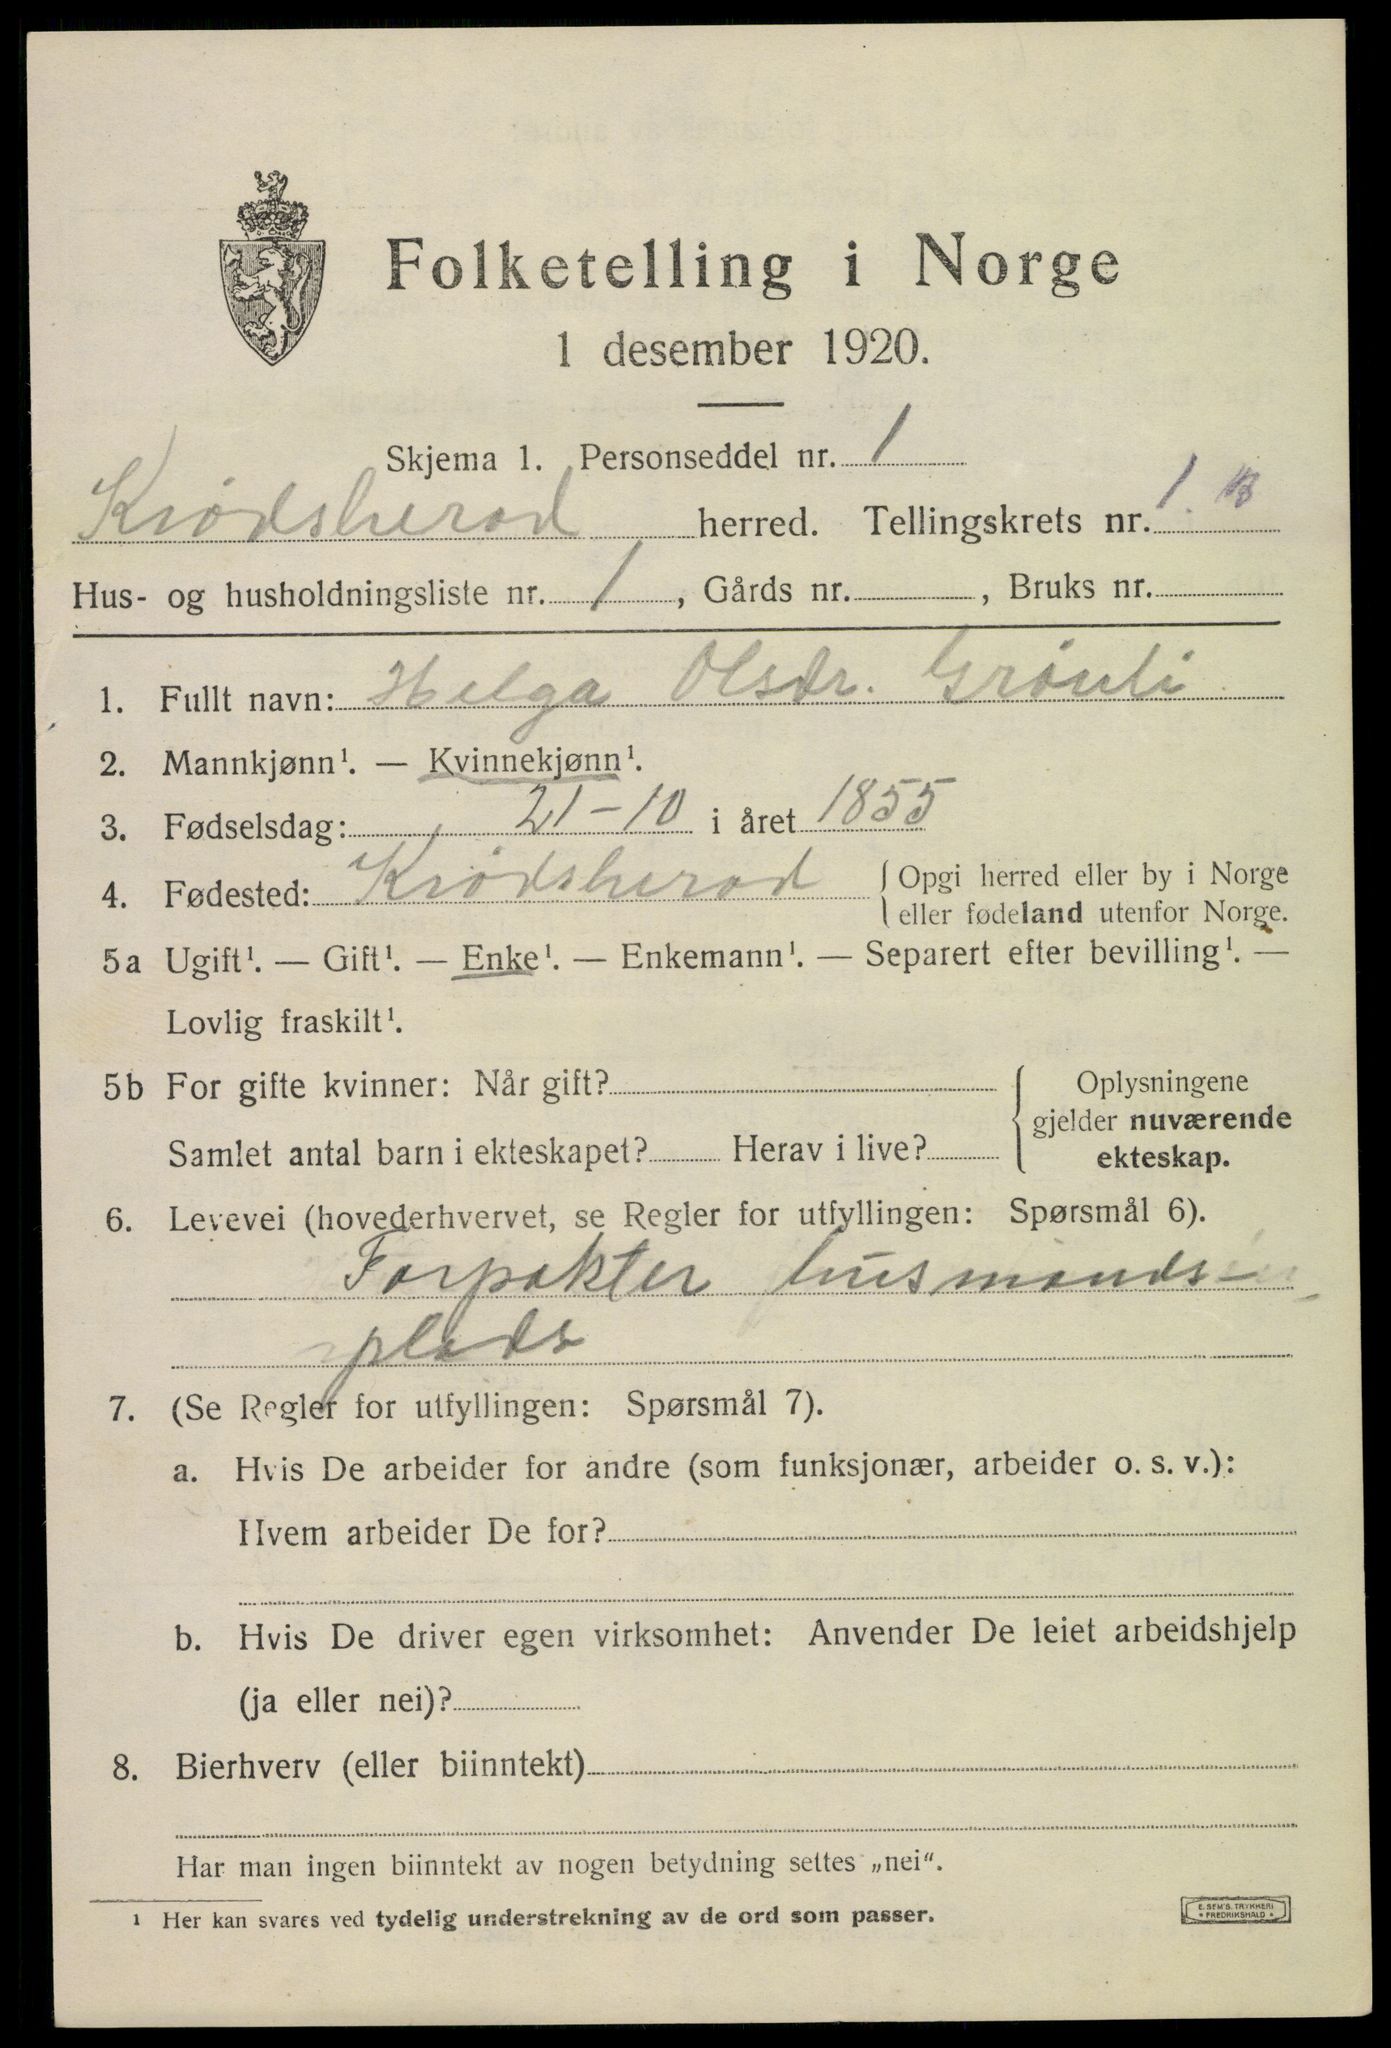 Folketelling i Norge
1 desember 1920.
Skjema 1. Personseddel nr. 1
Krødsherad herred. Tellingskrets nr. 1.
Hus- og husholdningsliste nr. 1, Gårds nr. , Bruks nr.
1. Fullt navn: Helga Olsdr. Grönli
2. Mannkjønn¹. — Kvinnekjønn¹.
3. Fødselsdag: 21-10 i året 1855
4. Fødested: Krødsherad { Opgi herred eller by i Norge
eller fødeland utenfor Norge.
5a Ugift¹. — Gift¹. — Enke¹. — Enkemann¹. — Separert efter bevilling¹. —
Lovlig fraskilt¹.
5b For gifte kvinner: Når gift? { Oplysningene
gjelder nuværende
Samlet antal barn i ekteskapet? Herav i live? ekteskap.
6. Levevei (hovederhvervet, se Regler for utfyllingen: Spørsmål 6).
Forpakter husmands-
plads
7. (Se Regler for utfyllingen: Spørsmål 7).
a. Hvis De arbeider for andre (som funksjonær, arbeider o. s. v.):
Hvem arbeider De for?
b. Hvis De driver egen virksomhet: Anvender De leiet arbeidshjelp
(ja eller nei)?
8. Bierhverv (eller biinntekt)
Har man ingen biinntekt av nogen betydning settes „nei“.
¹ Her kan svares ved tydelig understrekning av de ord som passer.
E. SEM'S TRYKKERI
FREDRIKSHALD